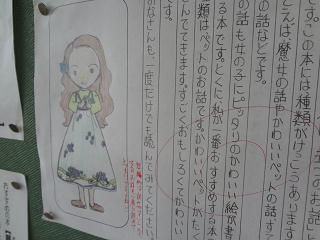 です。この本には種類がけっこうあります
とえば、魔女の話やかわいいペットの話、す
の話などです。
の話も女の子にピッタリのかわいい絵が書
る本です。とくに私が一番おすすめする本の
類はペットのお話です。かわいいペットがたく
んでてきます。すごくおもしろくてかわいい
です。
なさんも、一度だけでも読んでみてください
おすすめの本